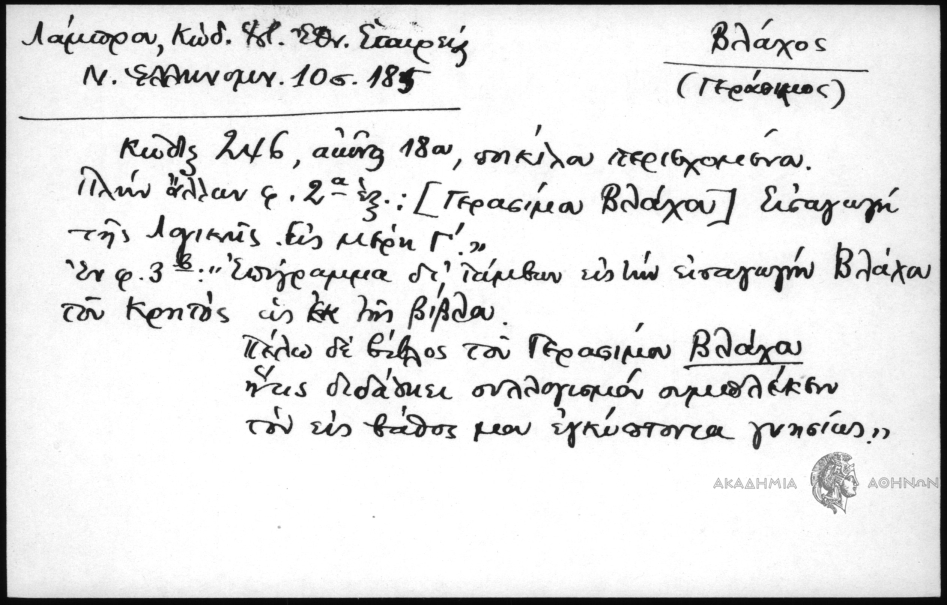 Λάμπρου, Κώδ. Ἱστ. Ἐθν. Ἑταιρείας
Ν. Ἑλληνομν. 10 σ. 185
Βλάχος
(Γεράσιμος)
Κώδιξ 246, αἰῶνος 18ου, ποικίλου περιεχομένου.
Πλὴν ἄλλων φ. 2α ἑξ.: [Γερασίμου Βλάχου] Εἰσαγωγὴ
τῆς Λογικῆς. Εἰς μέρη Γ΄."
Ἐν φ. 3β: "Ἐπίγραμμα δι' ἰάμβων εἰς τὴν εἰσαγωγὴν Βλάχου
τοῦ Κρητὸς ὡς ἐκ τῆς βίβλου.
Πέλω δὲ βίβλος τοῦ Γερασίμου Βλάχου
ἥτις διδάσκει συλλογισμὸν συμπλέκειν
τὸν εἰς βάθος μου ἐγκύπτοντα γνησίως."
ΑΚΑΔΗΜΙΑ ΑΘΗΝΩΝ